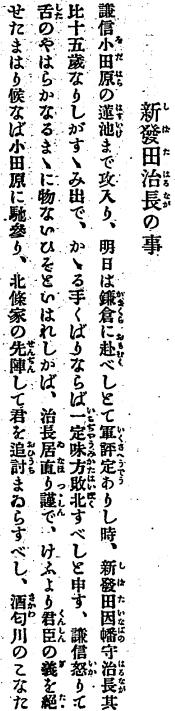 新發田治長の事
謙信小田原の蓮池まで攻入り、明日は鎌倉に赴べしとて軍評定ありし時、新發田因幡守治長其
比十五歲なりしがすゝみ出で、かゝる手くばりならば一定味方敗北すべしと申す、謙信怒りて
舌のやはらかなるまゝに物ないひそといはれしかば、治長居直り謹で、けふより君臣の義を絕
せたまはり候なば小田原に馳參り、北條家の先陣して君を追討まゐらすべし、酒匂川のこなた